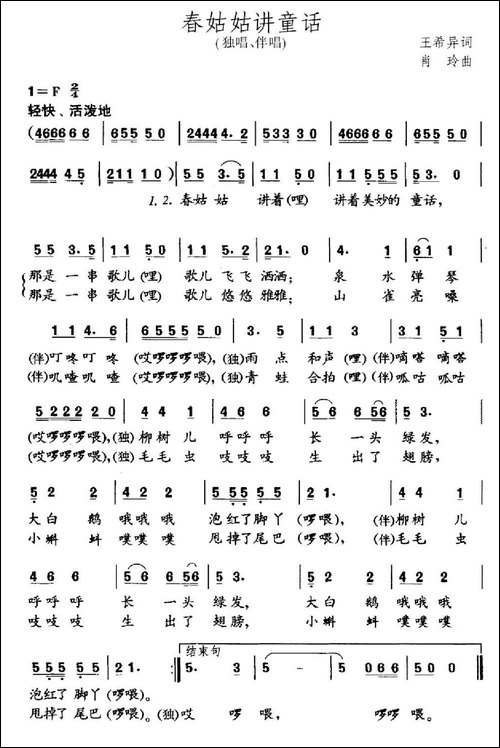 春姑姑讲童话
(独唱、伴唱)
王希异词
肖 玲曲
1=F 2/4
轻快、活泼地
(46666 6 | 655 5 0 | 2444 4. 2 | 533 3 0 | 46666 6 | 655 5 0 |
2444 4 5 | 211 1 0) | 5 5 3. 5 | 1 1 5 0 | 5 5 5 5 5 | 5 3. 0 |
1. 2. 春姑 姑 讲着(哩) 讲着美妙的 童话,
5 5 3. 5 | 1 1 5 0 | 1 1 5. 2 | 2 1 2 0 | 4. 1 | 6 1 1 |
那是 一 串 歌儿(哩) 歌儿 飞飞 洒洒; 泉 水 弹 琴
那是 一 串 歌儿(哩) 歌儿 悠悠 雅雅; 山 雀 亮 嗓
1 1 4. 6 | 6 5 5 5 5 0 | 3. 5 | 1 1 5 0 | 2 2 5. 1 |
(伴)叮咚叮 咚 (哎啰啰啰喂),(独)雨 点 和声(哩)(伴)嘀嗒 嘀嗒
(伴)叽喳叽 喳 (哎啰啰啰喂),(独)青 蛙 合拍(哩)(伴)呱咕 呱咕
5 2 2 2 2 0 | 4 4 1 | 4 6 6 | 5 6 | 6 5 6 | 2 3. |
(哎啰啰啰喂),(独)柳树 儿 呼呼 呼 长 一头 绿发,
(哎啰啰啰喂),(独)毛毛 虫 吱吱 吱 生 出了 翅膀,
5 2 2 | 4 2 1 | 5 5 5 5 5 | 2 1. | 4 4 1 |
大白 鹅 哦哦哦 泡红了脚丫 (啰喂), (伴)柳树 儿
小蝌 蚪 噗噗噗 甩掉了尾巴 (啰喂), (伴)毛毛 虫
4 6 6 | 5 6 | 6 5 6 | 5 3. | 5 2 2 | 4 2 1 |
呼呼 呼 长 一头 绿发, 大白 鹅 哦哦 哦
吱吱 吱 生 出了 翅膀, 小蝌 蚪 噗噗 噗
结束句
5 5 5 5 5 | 2 1. :‖ 5. 3 | 5 - | 5 - | 5 0 6 6 | 5 0 0 ‖
泡红了 脚丫 (啰喂)。
甩掉了 尾巴 (啰喂)。(独)哎 啰 喂, 啰啰 喂。